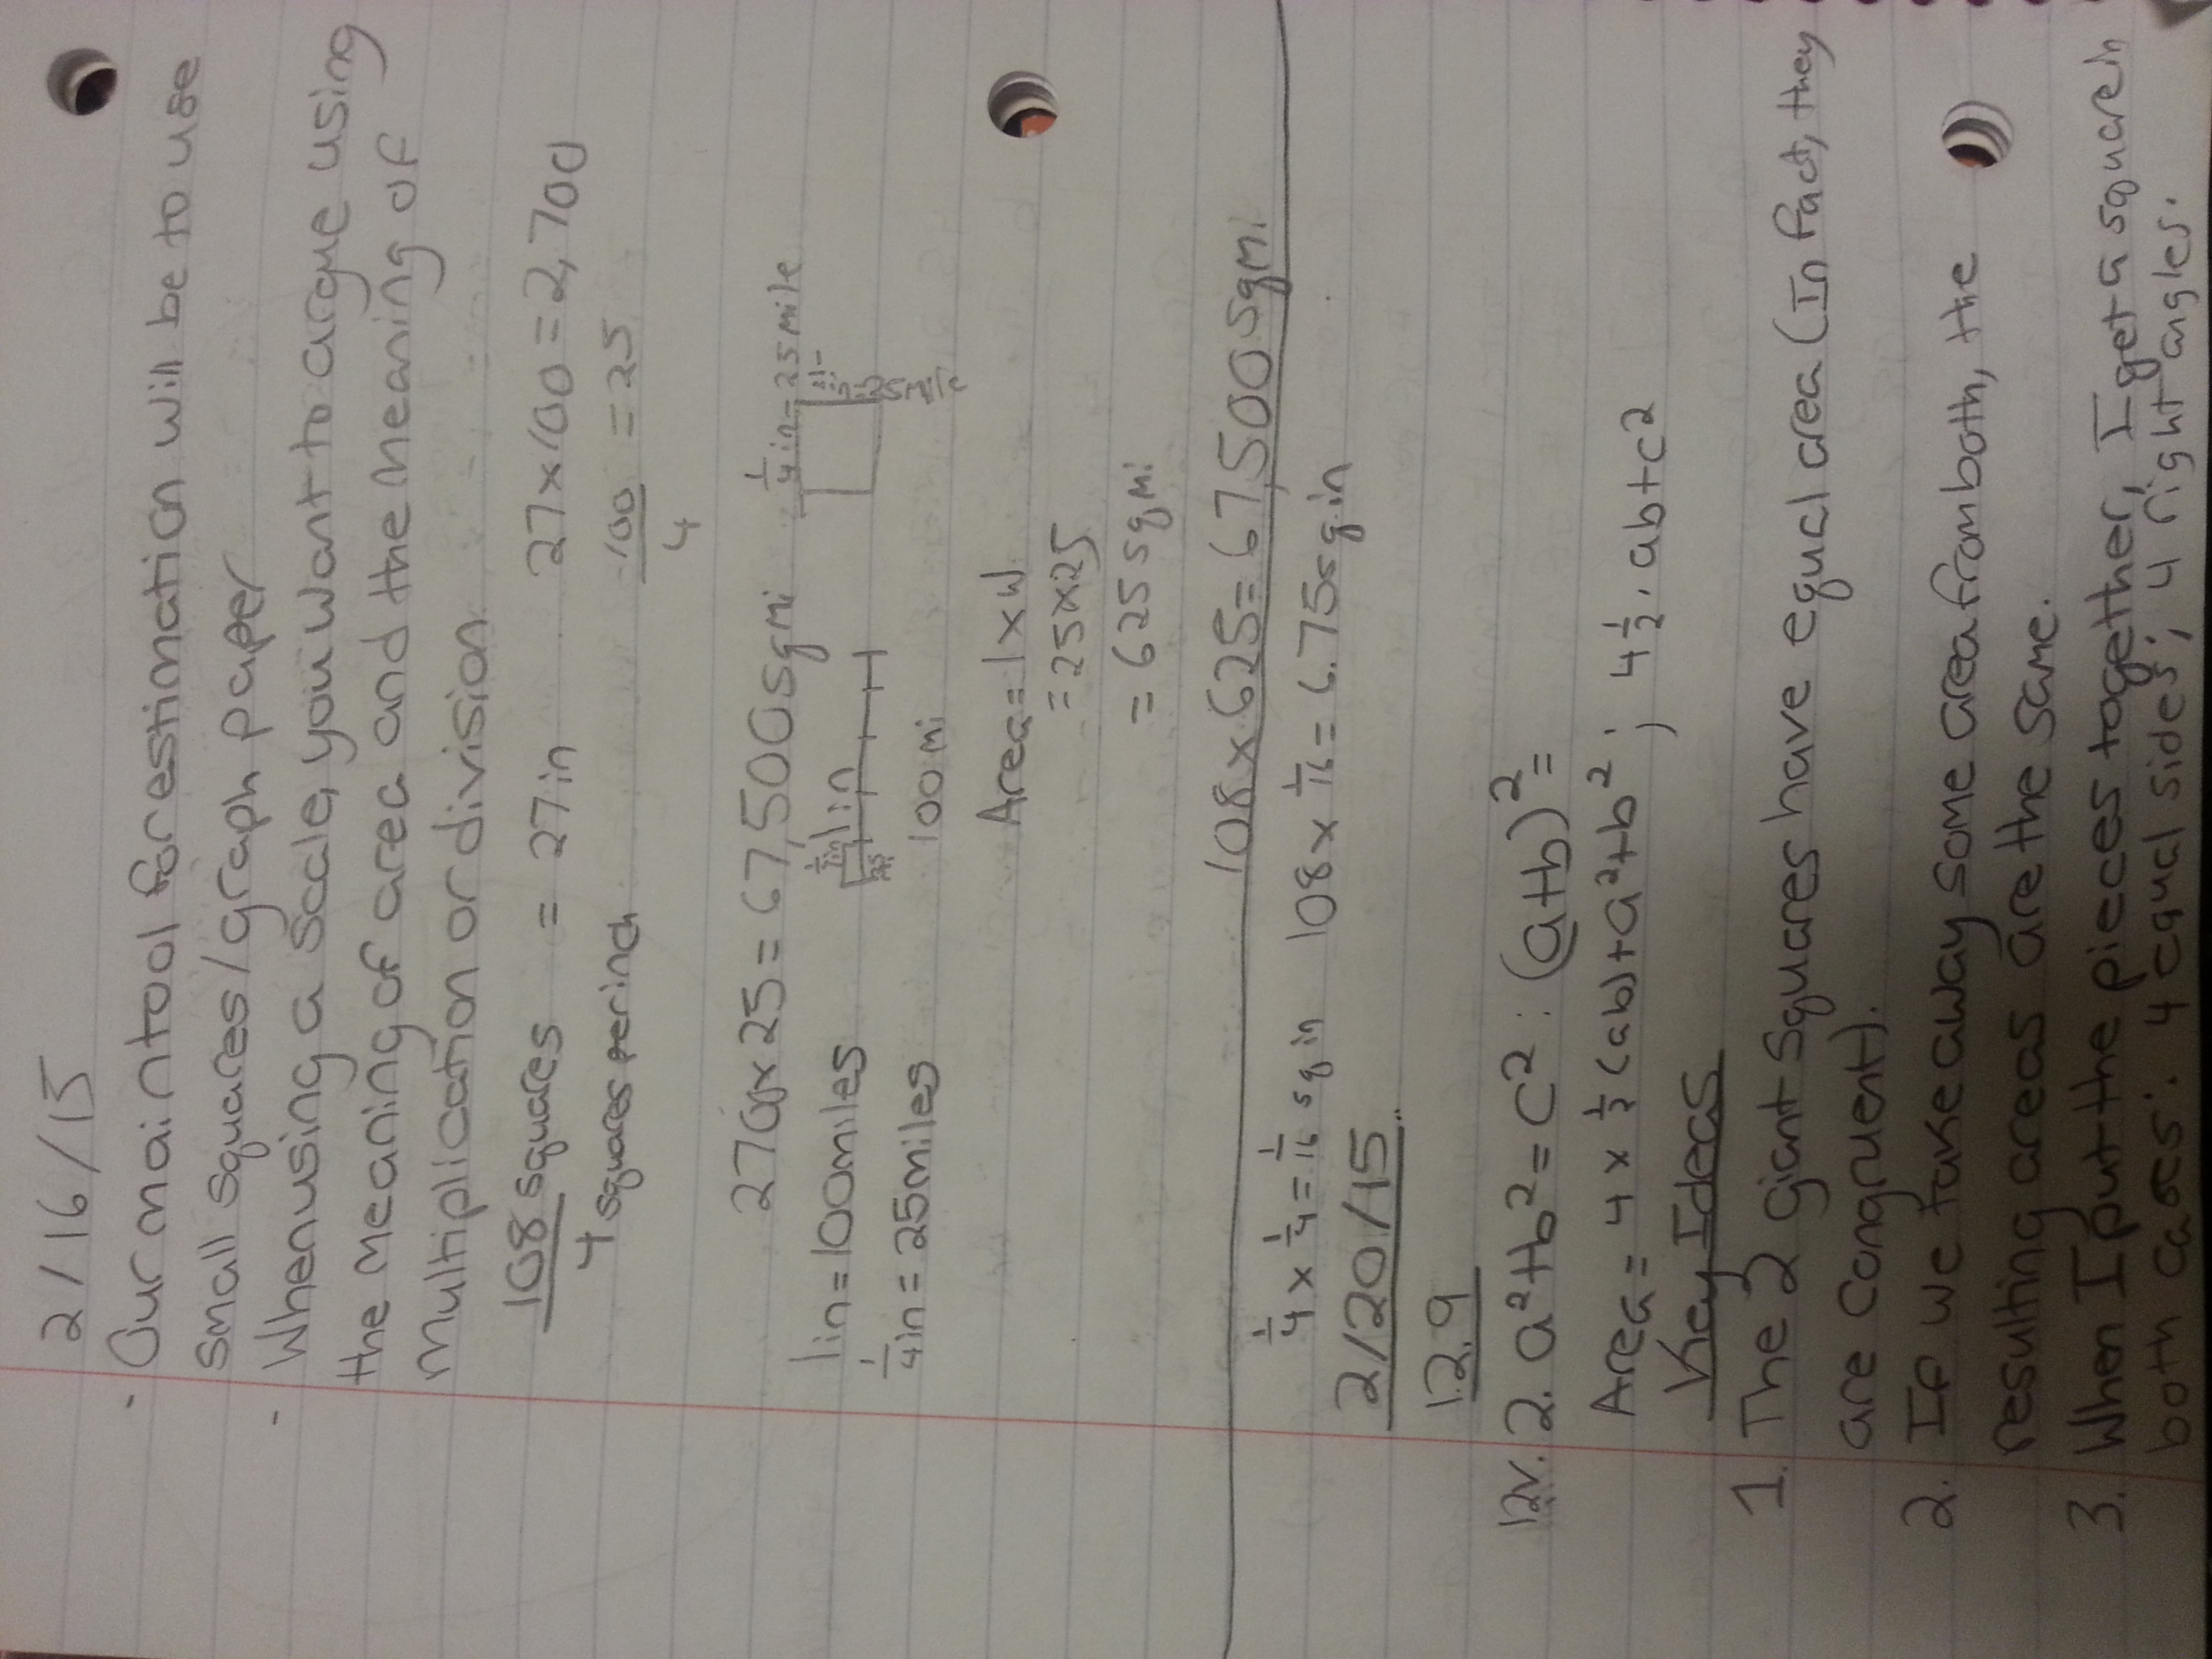 2/16/15
- Our main tool for estimation will be to use
small squares/graph paper
- When using a scale, you want to argue using
the meaning of area and the meaning of
multiplication or division.
108 squares = 27 in 27x100=2,700
4 squares per inch 100/4 = 25
2700x25=67,500 sqmi 1/4 in=25 mile
1in=100miles 1in
1/4 in=25miles 100mi
Area=lxw
=25x25
=625 sqmi
108x625=67,500sqmi
1/4 x 1/4 = 1/16 sq in 108x 1/16=6.75sq in
2/20/15
12.9
12v. 2. a²+b²=c²: (a+b)²=
Area= 4 x 1/2 (ab)+a²+b²; 4 1/2 · ab+c²
Key Ideas
1. The 2 giant squares have equal area (In fact, they
are congruent).
2. If we take away some area from both, the
resulting areas are the same.
3. When I put the pieces together, I get a square in
both cases: 4 equal sides; 4 right angles.